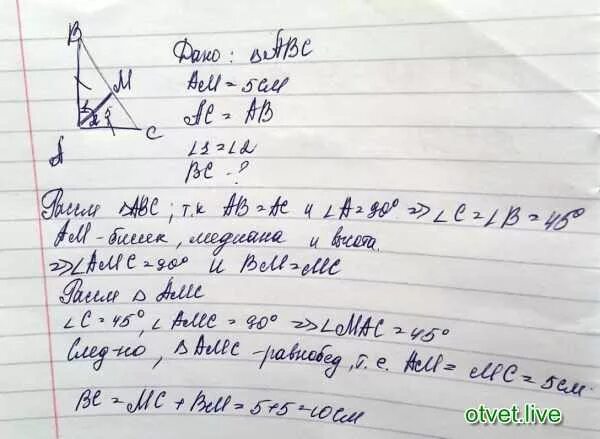 B
Дано: △ABC
M
AM = 5см
AC = AB
1 2 5
C
A
∠1 = ∠2
BC - ?
Рассм △ABC; т.к AB = AC и ∠A = 90° => ∠C = ∠B = 45°
AM - биссек, медиана и высота.
=> ∠AMC = 90° и BM = MC
Рассм △ AMC
∠C = 45°, ∠AMC = 90° => ∠MAC = 45°
След-но, △AMC - равнобед, т.е. AM = MC = 5см.
BC = MC + BM = 5 + 5 = 10см
otvet.live